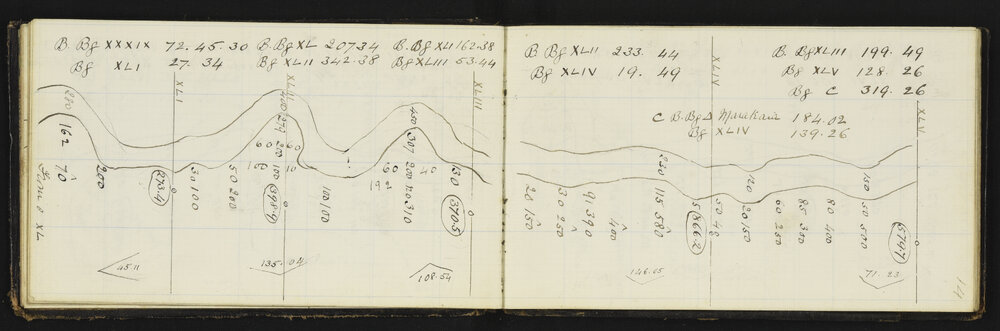 B. Bg XXXIX 72.45.30 B. Bg XL 207.34 B. Bg XLI 162.38
Bg XLI 27.34 Bg XLII 342.38 Bg XLIII 53.44
XLI
XLII
XLIII
162
70
200
273.4
30 100
50 200
398.9
100 100
192
450
307
200
310
40
130
370.5
From O XL
45.11
135.04
108.54
B. Bg XLII 233.44
Bg XLIV 19.49
B. Bg XLIII 199.49
Bg XLV 128.26
Bg C 319.26
C B. Bg Δ 184.02
Bg XLIV 139.26
XLIV
XLV
250
120
150
20 150
30 250
91 390
400
115 580
586.2
50 48
20 150
60 250
85 350
80 400
50 500
574.7
146.05
71.23
14